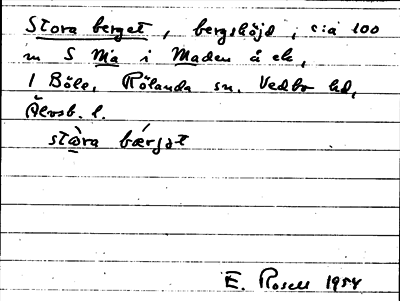 Stora berget, bergshöjd, c:a 100
m S Mia i Maden å ek,
1 Böle, Rölanda sn. Vedbo hd,
Älvsb. l.
stɷ̀ra bǽrjət
E. Rosell 1954